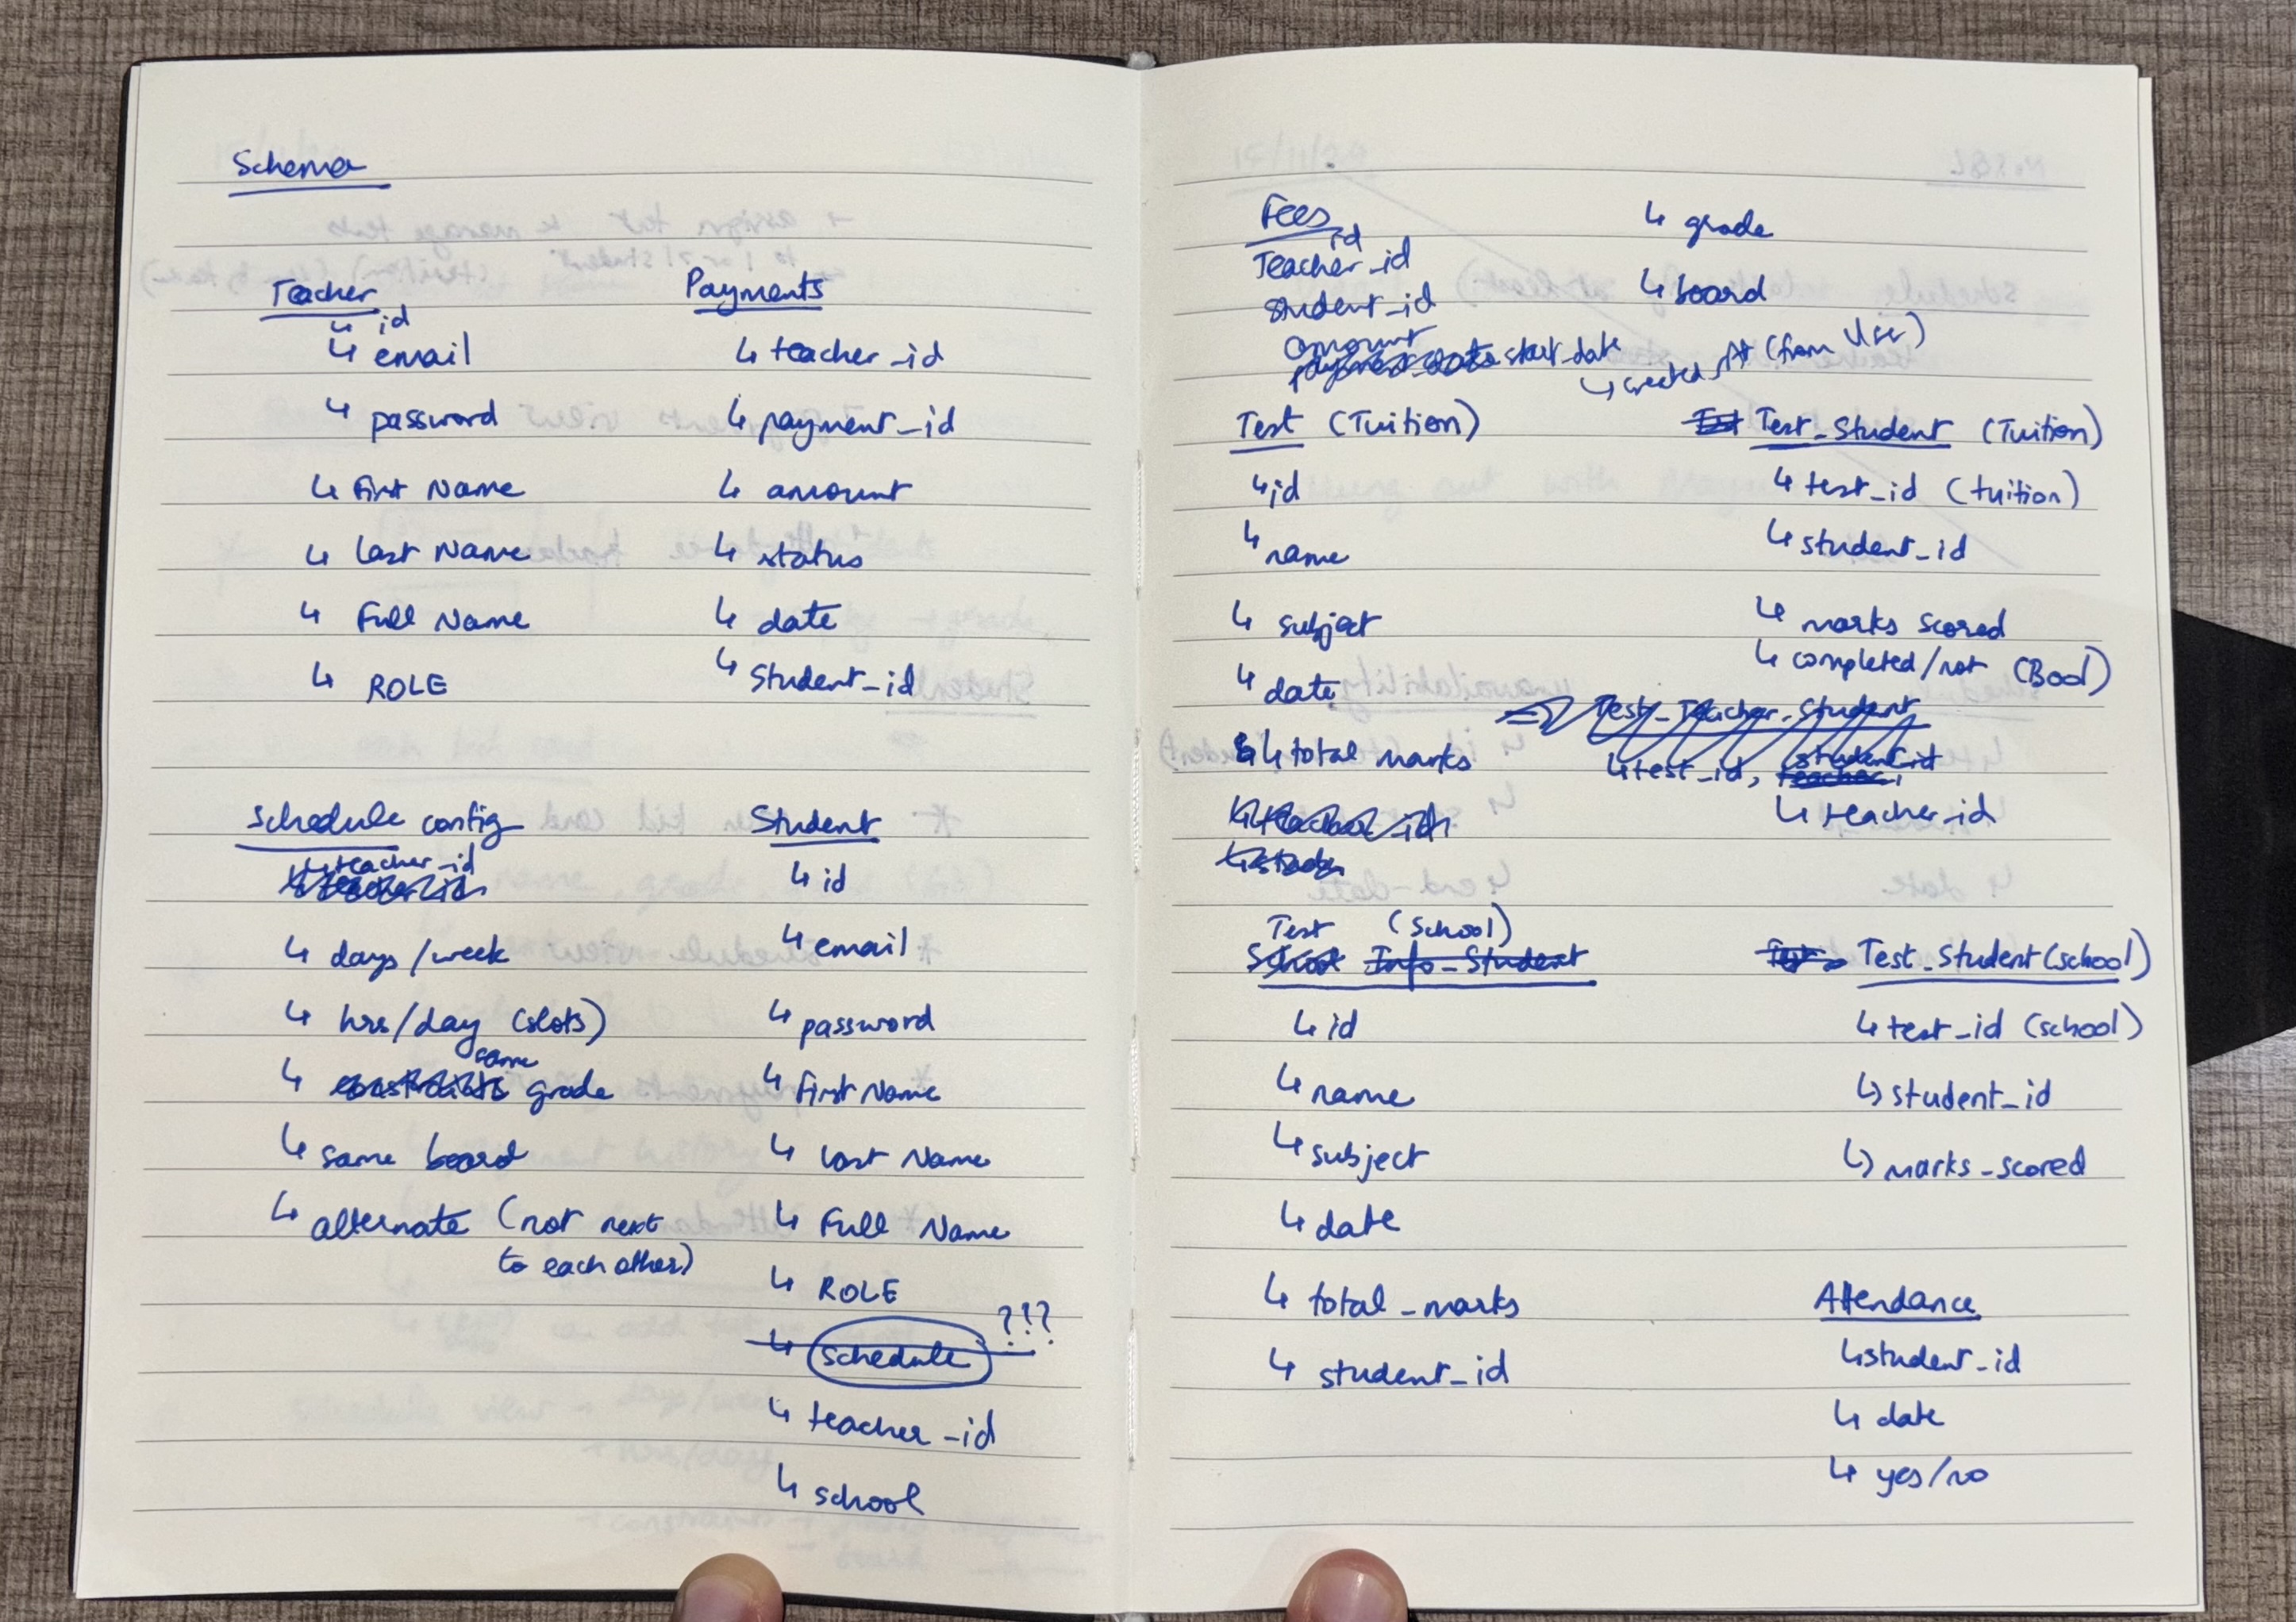 Schema
Teacher
↳ id
↳ email
↳ password
↳ First Name
↳ Last Name
↳ Full Name
↳ ROLE
Payments
↳ teacher_id
↳ payment_id
↳ amount
↳ status
↳ date
↳ Student_id
Schedule config
↳ teacher_id
↳ teacher_id
↳ days/week
↳ hrs/day (slots)
↳ constraints same grade
↳ same board
↳ alternate (not next
to each other)
Student
↳ id
↳ email
↳ password
↳ First Name
↳ Last Name
↳ Full Name
↳ ROLE
↳ schedule ?!?
↳ teacher_id
↳ school
Fees
id
Teacher_id
student_id
amount
payment_date start_date
↳ grade
↳ board
↳ created_At (from User)
Test (Tuition)
↳ id
↳ name
↳ subject
↳ date
↳ total marks
↳ teacher_id
Test Test_Student (Tuition)
↳ test_id (tuition)
↳ student_id
↳ marks scored
↳ completed/not (Bool)
Test_Teacher_Student
↳ test_id, student_id
teacher
↳ teacher_id
Test (School)
School Info_Student
↳ id
↳ name
↳ subject
↳ date
↳ total_marks
↳ student_id
Test_Student (school)
↳ test_id (school)
↳ student_id
↳ marks_scored
Attendance
↳ student_id
↳ date
↳ yes/no